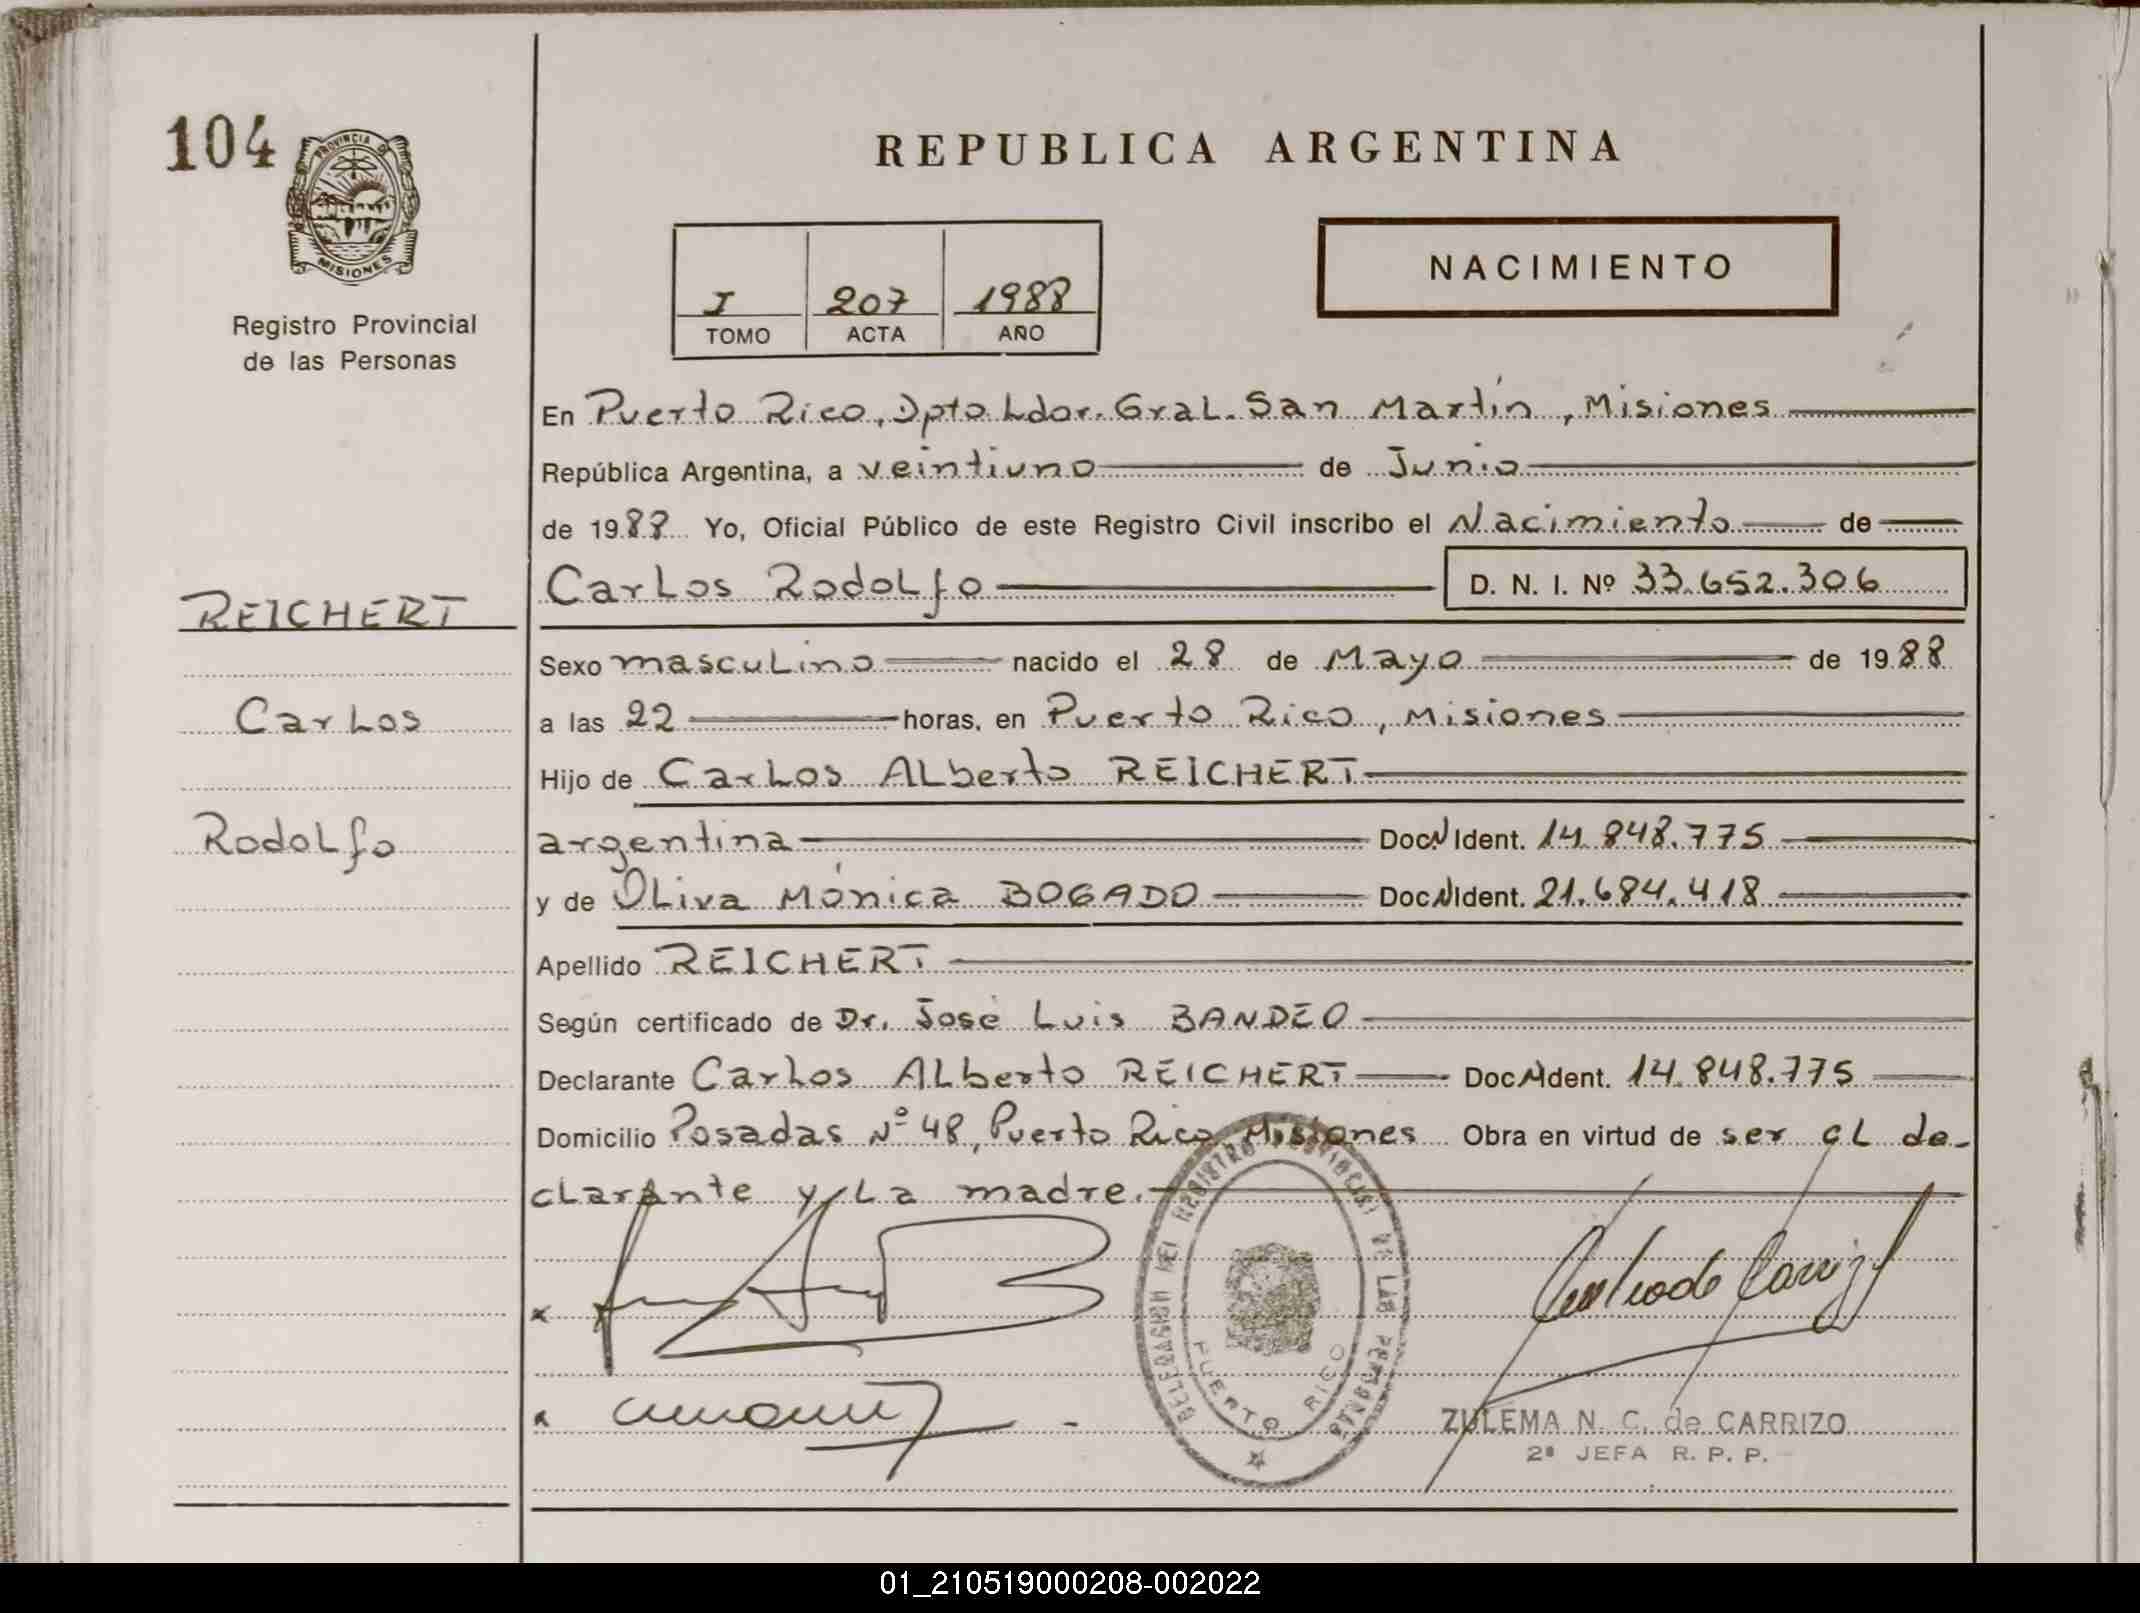 104
PROVINCIA DE
MISIONES
Registro Provincial
de las Personas
REPUBLICA ARGENTINA
I 207 1988
TOMO ACTA AÑO
NACIMIENTO
En Puerto Rico, Dpto Ldor. Gral. San Martín, Misiones
República Argentina, a veintiuno de Junio
de 1988 Yo, Oficial Público de este Registro Civil inscribo el Nacimiento de
Carlos Rodolfo D. N. I. Nº 33.652.306
REICHERT
Carlos
Rodolfo
Sexo masculino nacido el 28 de Mayo de 1988
a las 22 horas, en Puerto Rico, Misiones
Hijo de Carlos Alberto REICHERT
argentina Doc N Ident. 14.848.775
y de Oliva Mónica BOGADO Doc N Ident. 21.684.418
Apellido REICHERT
Según certificado de Dr. José Luis BANDEO
Declarante Carlos Alberto REICHERT Doc N Ident. 14.848.775
Domicilio Posadas Nº 48, Puerto Rico, Misiones Obra en virtud de ser el de-
clarante y la madre.
DELEGACION DEL REGISTRO PROVINCIAL DE LAS PERSONAS
PUERTO RICO
ZULEMA N. C. de CARRIZO
2ª JEFA R. P. P.
01_210519000208-002022